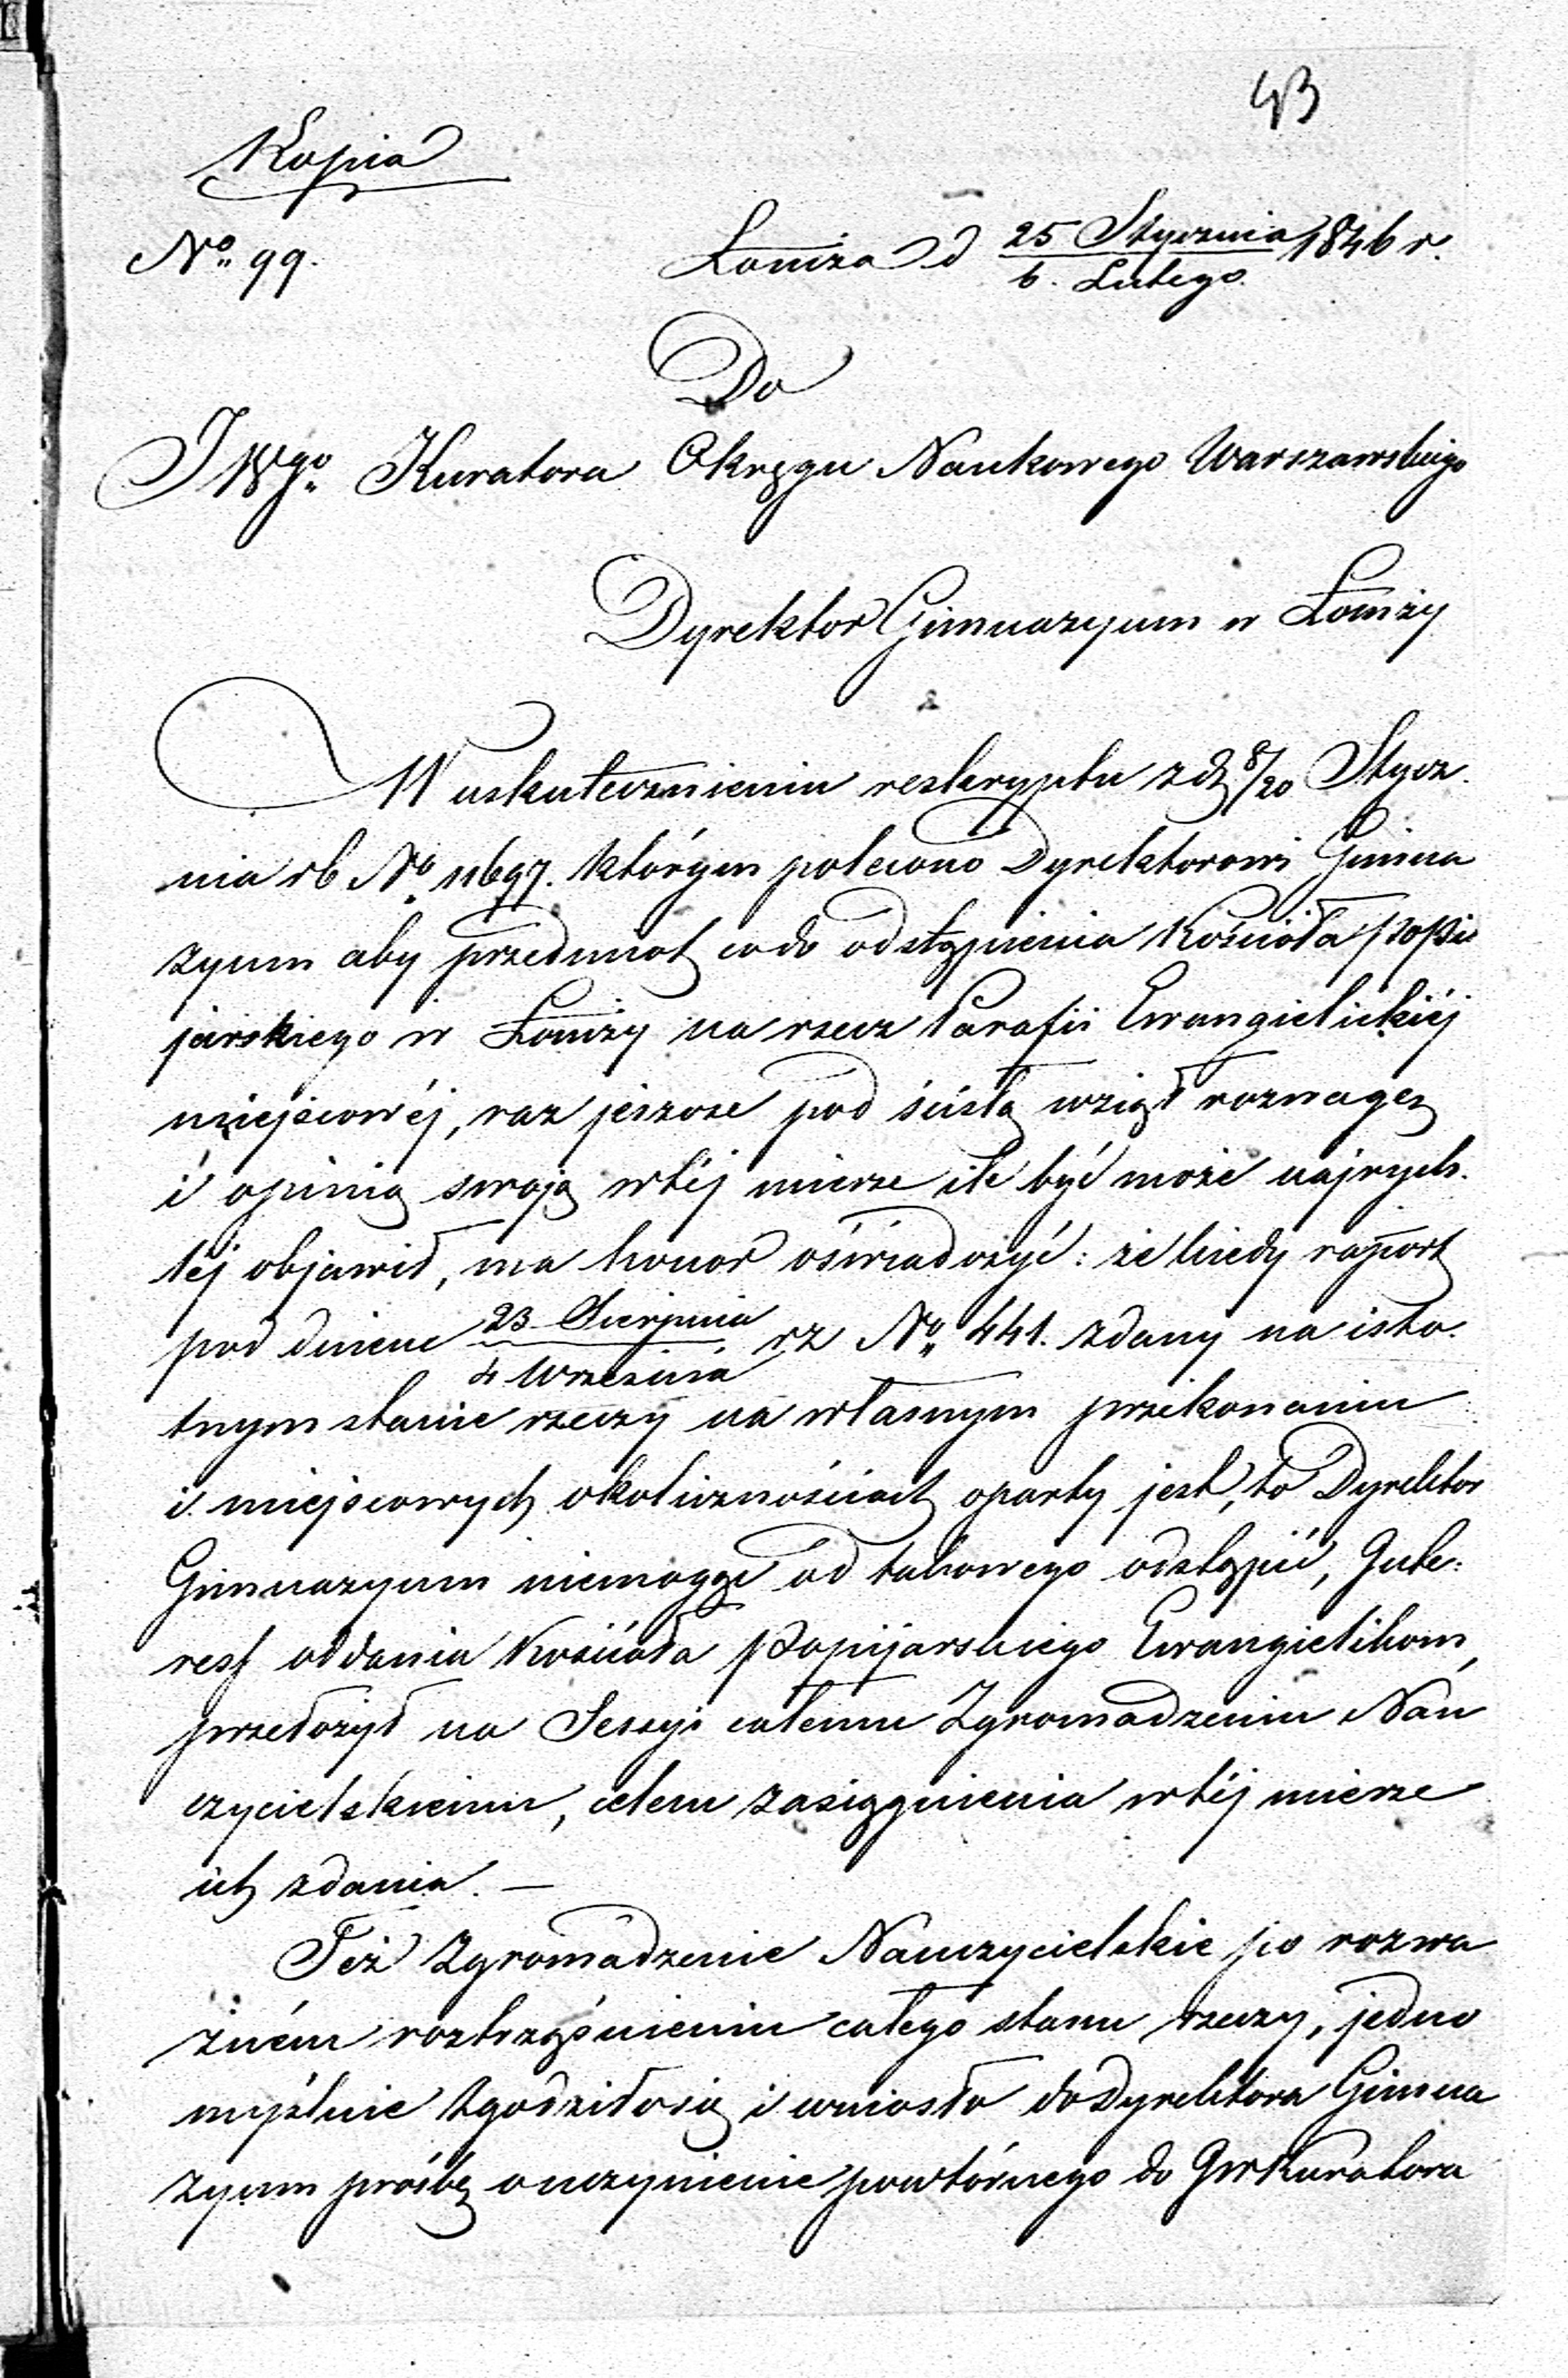 43
Kopia
No 99.
Łomża d 25 Stycznia 1846 r.
6. Lutego.
Do
JWgo Kuratora Okręgu Naukowego Warszawskiego
Dyrektor Gimnazyum w Łomży
W uskutecznieniu reskryptu z d. 8/20 Stycz.
nia rb No 11697. którym polecono Dyrektorowi Gimna
zyum aby przedmiot co do odstąpienia Kościoła popi
jarskiego w Łomży na rzecz Parafii Ewangielickiéj
miejscowéj, raz jeszcze pod ścisłą wziął rozwagę
i opinią swoją w téj mierze ile być może najrych.
léj objawił, ma honor oświadczyć: że kiedy raport
pod dniem 23 Sierpnia rz No 441. zdany na isto.
4 Września
tnym stanie rzeczy na własnym przekonaniu
i miejscowych okolicznościach oparty jest, to Dyrektor
Gimnazyum niemogąc od takowego odstąpić, Inte:
ress oddania Kościoła popijarskiego Ewangielikom,
przełożył na Sessyi całemu Zgromadzeniu Nau
czycielskiemu, celem zasiągnienia w téj mierze
ich zdania. —
Też Zgromadzenie Nauczycielskie po rozwa
żném roztrząśnieniu całego stanu rzeczy, jedno
myślnie zgodziło się i wniosło do Dyrektora Gimna
zyum prośbę o uczynienie powtórnego do JW Kuratora